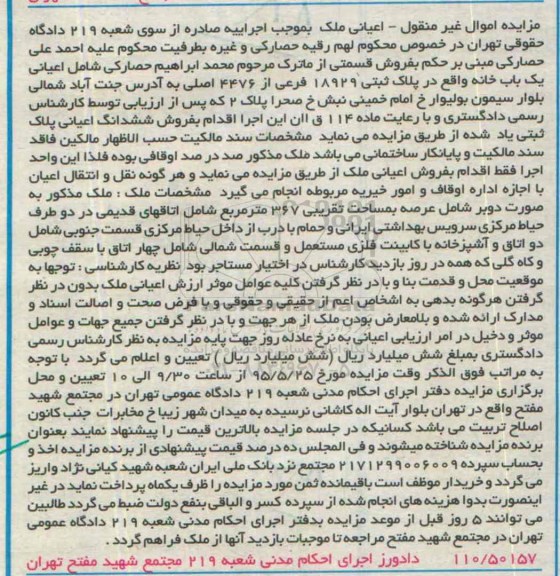 مزایده اموال غیر منقول - اعیانی ملک بموجب اجراییه صادره از سوی شعبه ۲۱۹ دادگاه
حقوقی تهران در خصوص محکوم لهم رقیه حصارکی و غیره بطرفیت محکوم علیه احمد علی
حصارکی مبنی بر حکم بفروش قسمتی از ماترک مرحوم محمد ابراهیم حصارکی شامل اعیانی
یک باب خانه واقع در پلاک ثبتی ۱۸۹۲۹ فرعی از ۴۴۷۶ اصلی به آدرس جنت آباد شمالی
بلوار سیمون بولیوار خ امام خمینی نبش خ صحرا پلاک ۲ که پس از ارزیابی توسط کارشناس
رسمی دادگستری و با رعایت ماده ۱۱۴ ق اان این اجرا اقدام بفروش ششدانگ اعیانی پلاک
ثبتی یاد شده از طریق مزایده می نماید مشخصات سند مالکیت حسب الاظهار مالکین فاقد
سند مالکیت و پایانکار ساختمانی می باشد ملک مذکور صد در صد اوقافی بوده فلذا این واحد
اجرا فقط اقدام بفروش اعیانی ملک از طریق مزایده می نماید و هر گونه نقل و انتقال اعیان
با اجازه اداره اوقاف و امور خیریه مربوطه انجام می گیرد مشخصات ملک : ملک مذکور به
صورت دوبر شامل عرصه بمساحت تقریبی ۳۶۷ مترمربع شامل اتاقهای قدیمی در دو طرف
حیاط مرکزی سرویس بهداشتی ایرانی و حمام با درب از داخل حیاط مرکزی قسمت جنوبی شامل
دو اتاق و آشپزخانه با کابینت فلزی مستعمل و قسمت شمالی شامل چهار اتاق با سقف چوبی
و کاه گلی که همه در روز بازدید کارشناس در اختیار مستاجر بود نظریه کارشناسی : توجها به
موقعیت محل و قدمت بنا و با در نظر گرفتن کلیه عوامل موثر ارزش اعیانی ملک بدون در نظر
گرفتن هرگونه بدهی به اشخاص اعم از حقیقی و حقوقی و با فرض صحت و اصالت اسناد و
مدارک ارائه شده و بلامعارض بودن ملک از هر جهت و با در نظر گرفتن جمیع جهات و عوامل
موثر و دخیل در امر ارزیابی اعیانی به نرخ عادله روز جهت پایه مزایده به نظر کارشناس رسمی
دادگستری بمبلغ شش میلیارد ریال (شش میلیارد ریال) تعیین و اعلام می گردد با توجه
به مراتب فوق الذکر وقت مزایده مورخ ۹۵/۵/۲۵ از ساعت ۹/۳۰ الی ۱۰ تعیین و محل
برگزاری مزایده دفتر اجرای احکام مدنی شعبه ۲۱۹ دادگاه عمومی تهران در مجتمع شهید
مفتح واقع در تهران بلوار آیت اله کاشانی نرسیده به میدان شهر زیبا خ مخابرات جنب کانون
اصلاح تربیت می باشد کسانیکه در جلسه مزایده بالاترین قیمت را پیشنهاد نمایند بعنوان
برنده مزایده شناخته میشوند و فی المجلس ده درصد قیمت پیشنهادی از برنده مزایده اخذ و
بحساب سپرده ۲۱۷۱۲۹۹۰۰۶۰۰۹ مجتمع نزد بانک ملی ایران شعبه شهید کیانی نژاد واریز
می گردد و خریدار موظف است باقیمانده ثمن مورد مزایده را ظرف یکماه پرداخت نماید در غیر
اینصورت بدوا هزینه های انجام شده از سپرده کسر و الباقی بنفع دولت ضبط می گردد طالبین
می توانند ۵ روز قبل از موعد مزایده بدفتر اجرای احکام مدنی شعبه ۲۱۹ دادگاه عمومی
تهران در مجتمع شهید مفتح مراجعه تا موجبات بازدید آنها از ملک فراهم گردد .
۱۱۰/۵۰۱۵۷ دادورز اجرای احکام مدنی شعبه ۲۱۹ مجتمع شهید مفتح تهران